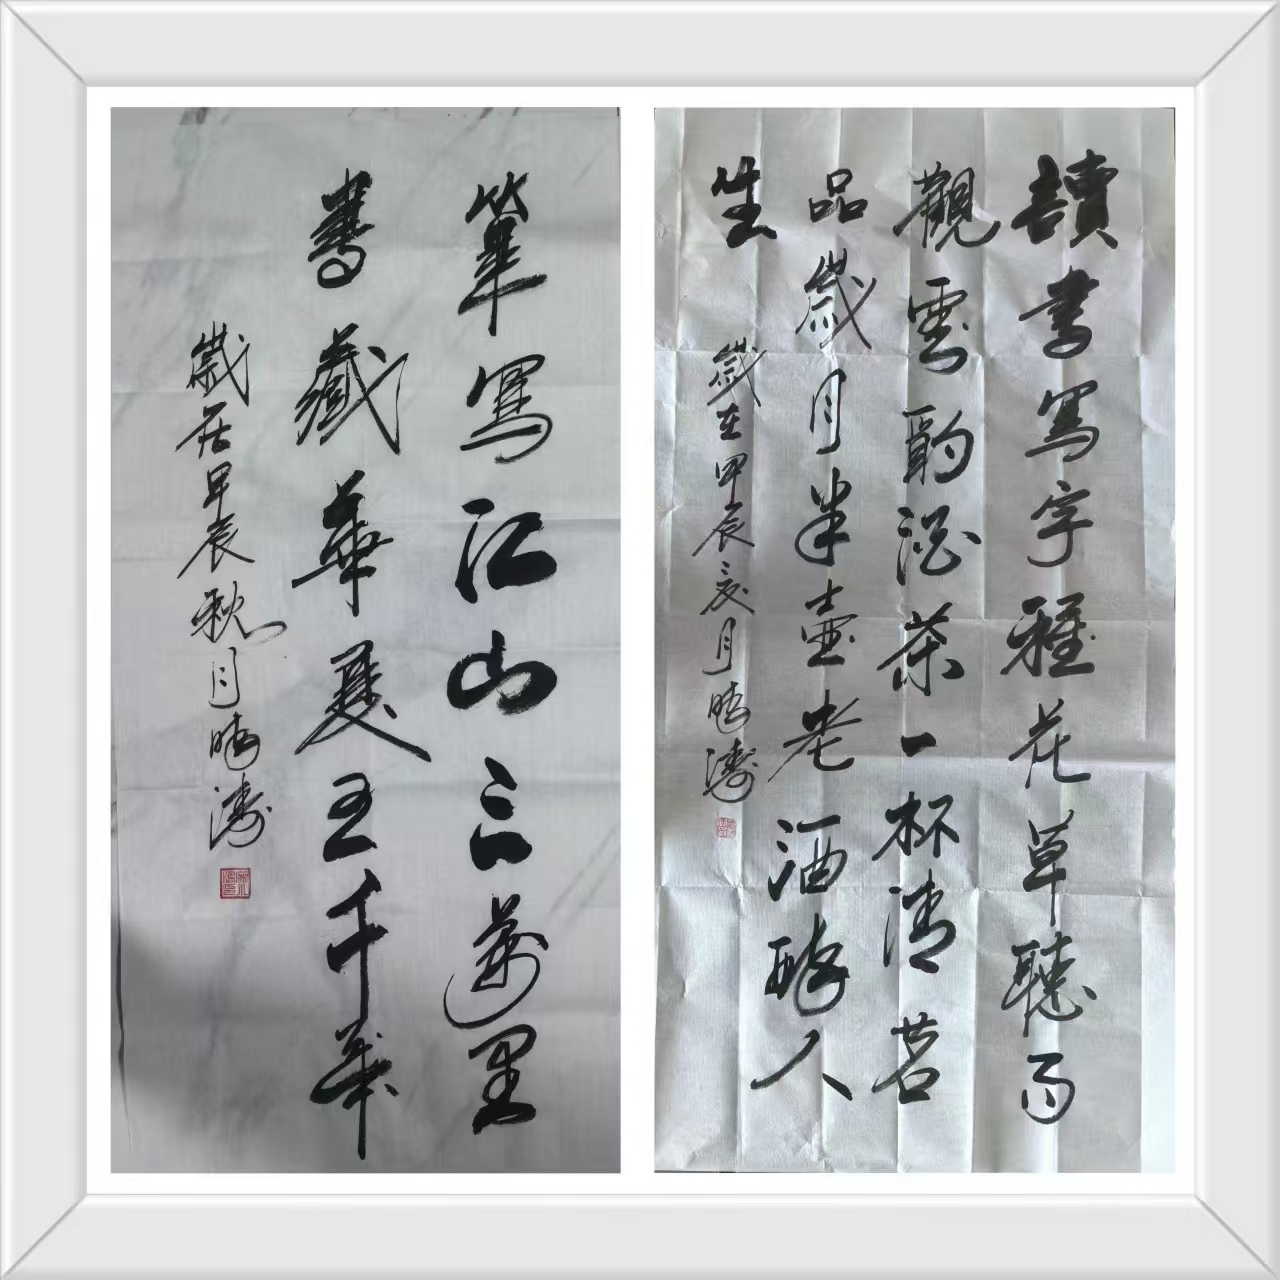 讀書寫字種花草聽雨
觀雲酌酒茶一杯清茗
品歲月半壺老酒醉人
生
歲在甲辰亥月晴濤
筆寫江山三萬里
書藏華夏五千年
歲在甲辰秋月晴濤